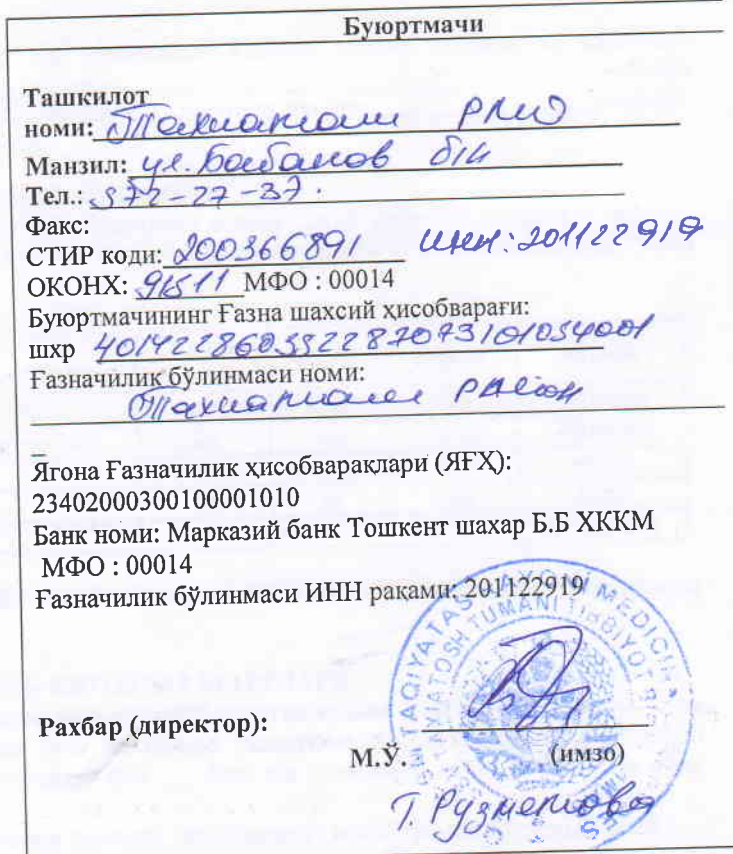 Буюртмачи
Ташкилот
номи: Тахиаташ РМО
Манзил: ул. Бабанов б/н
Тел.: 572-27-37.
Факс:
СТИР коди: 200366891 ИНН: 201122919
ОКОНХ: 91511 МФО : 00014
Буюртмачининг Ғазна шахсий ҳисобварағи:
шхр 401422860352287073101054001
Ғазначилик бўлинмаси номи:
Тахиаташ район
Ягона Ғазначилик ҳисобварақлари (ЯҒҲ):
23402000300100001010
Банк номи: Марказий банк Тошкент шахар Б.Б ХККМ
МФО : 00014
Ғазначилик бўлинмаси ИНН рақами: 201122919
TAQIYATAS RAYONÍ MEDICIN
TAXIATOSH TUMANI TIBBIYOT
Рахбар (директор):
М.Ў. (имзо)
Т. Рузметова